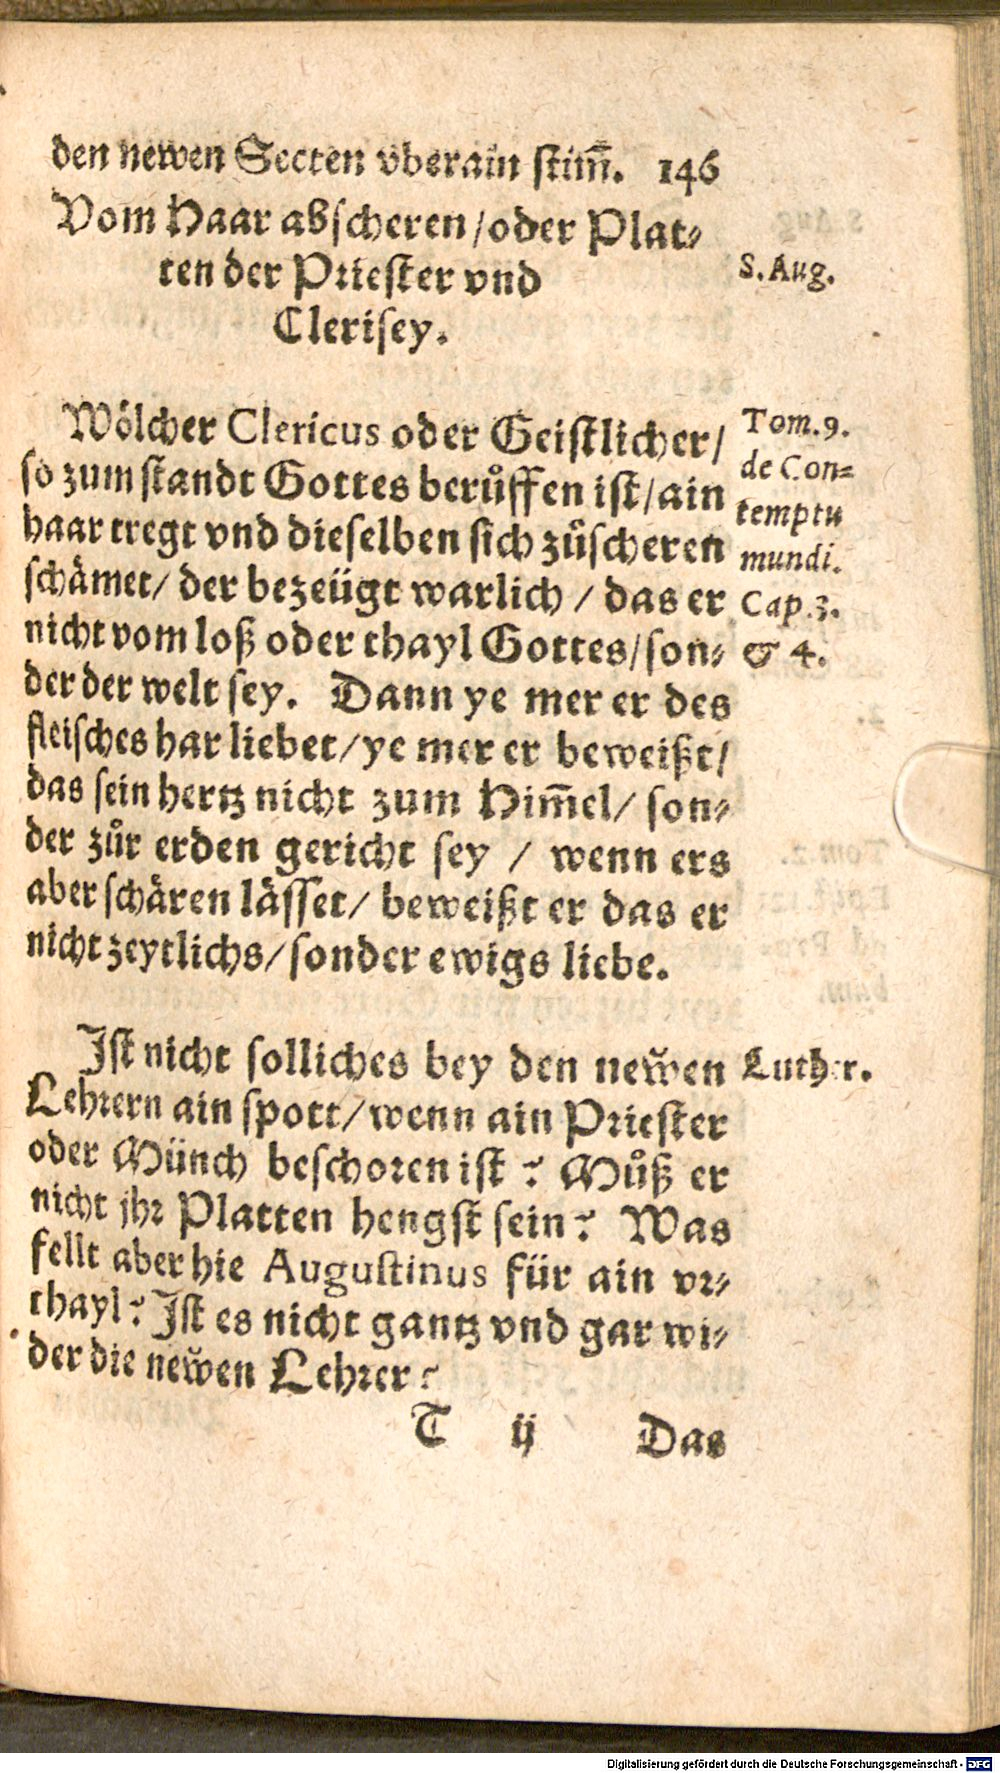 den newen Secten vberain stim̃. 146
Vom Haar abscheren/oder Plat-
ten der Priester vnd
Clerisey.
S. Aug.
Wölcher Clericus oder Geistlicher/
so zum standt Gottes berůffen ist/ain
haar tregt vnd dieselben sich zůscheren
schämet/ der bezeügt warlich / das er
nicht vom loß oder thayl Gottes/son-
der der welt sey. Dann ye mer er des
fleisches har liebet/ye mer er beweißt/
das sein hertz nicht zum Him̃el/ son-
der zůr erden gericht sey / wenn ers
aber schären lässet/ beweißt er das er
nicht zeytlichs/sonder ewigs liebe.
Tom.9.
de Con=
temptu
mundi.
Cap.3.
& 4.
Ist nicht solliches bey den newen
Lehrern ain spott/wenn ain Priester
oder Münch beschoren ist? Můß er
nicht jhr Platten hengst sein? Was
fellt aber hie Augustinus für ain vr-
thayl? Ist es nicht gantz vnd gar wi-
der die newen Lehrer?
Luther.
T ij Das
Digitalisierung gefördert durch die Deutsche Forschungsgemeinschaft - DFG